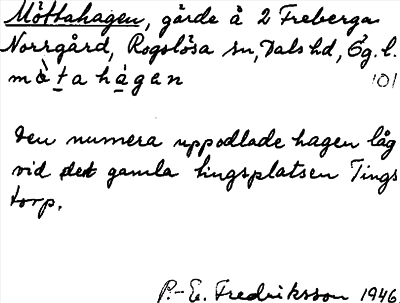 Möttahagen, gärde å 2 Freberga
Norrgård, Rogslösa sn, Dals hd, Ög. l.
mò̀ṯa hágan 101
Den numera uppodlade hagen låg
vid det gamla tingsplatsen Tings
torp.
P.-E. Fredriksson 1946.